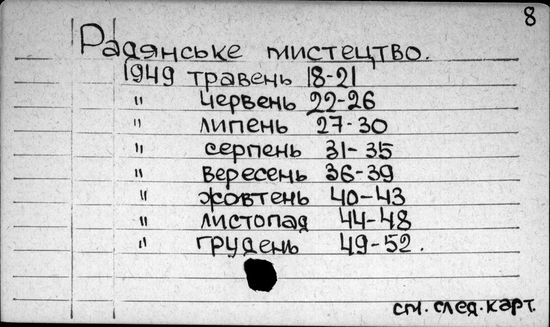 8
Радянське мистецтво.
1949 травень 18-21
" червень 22-26
" липень 27-30
" серпень 31-35
" вересень 36-39
" жовтень 40-43
" листопад 44-48
" грудень 49-52.
см. след. карт.